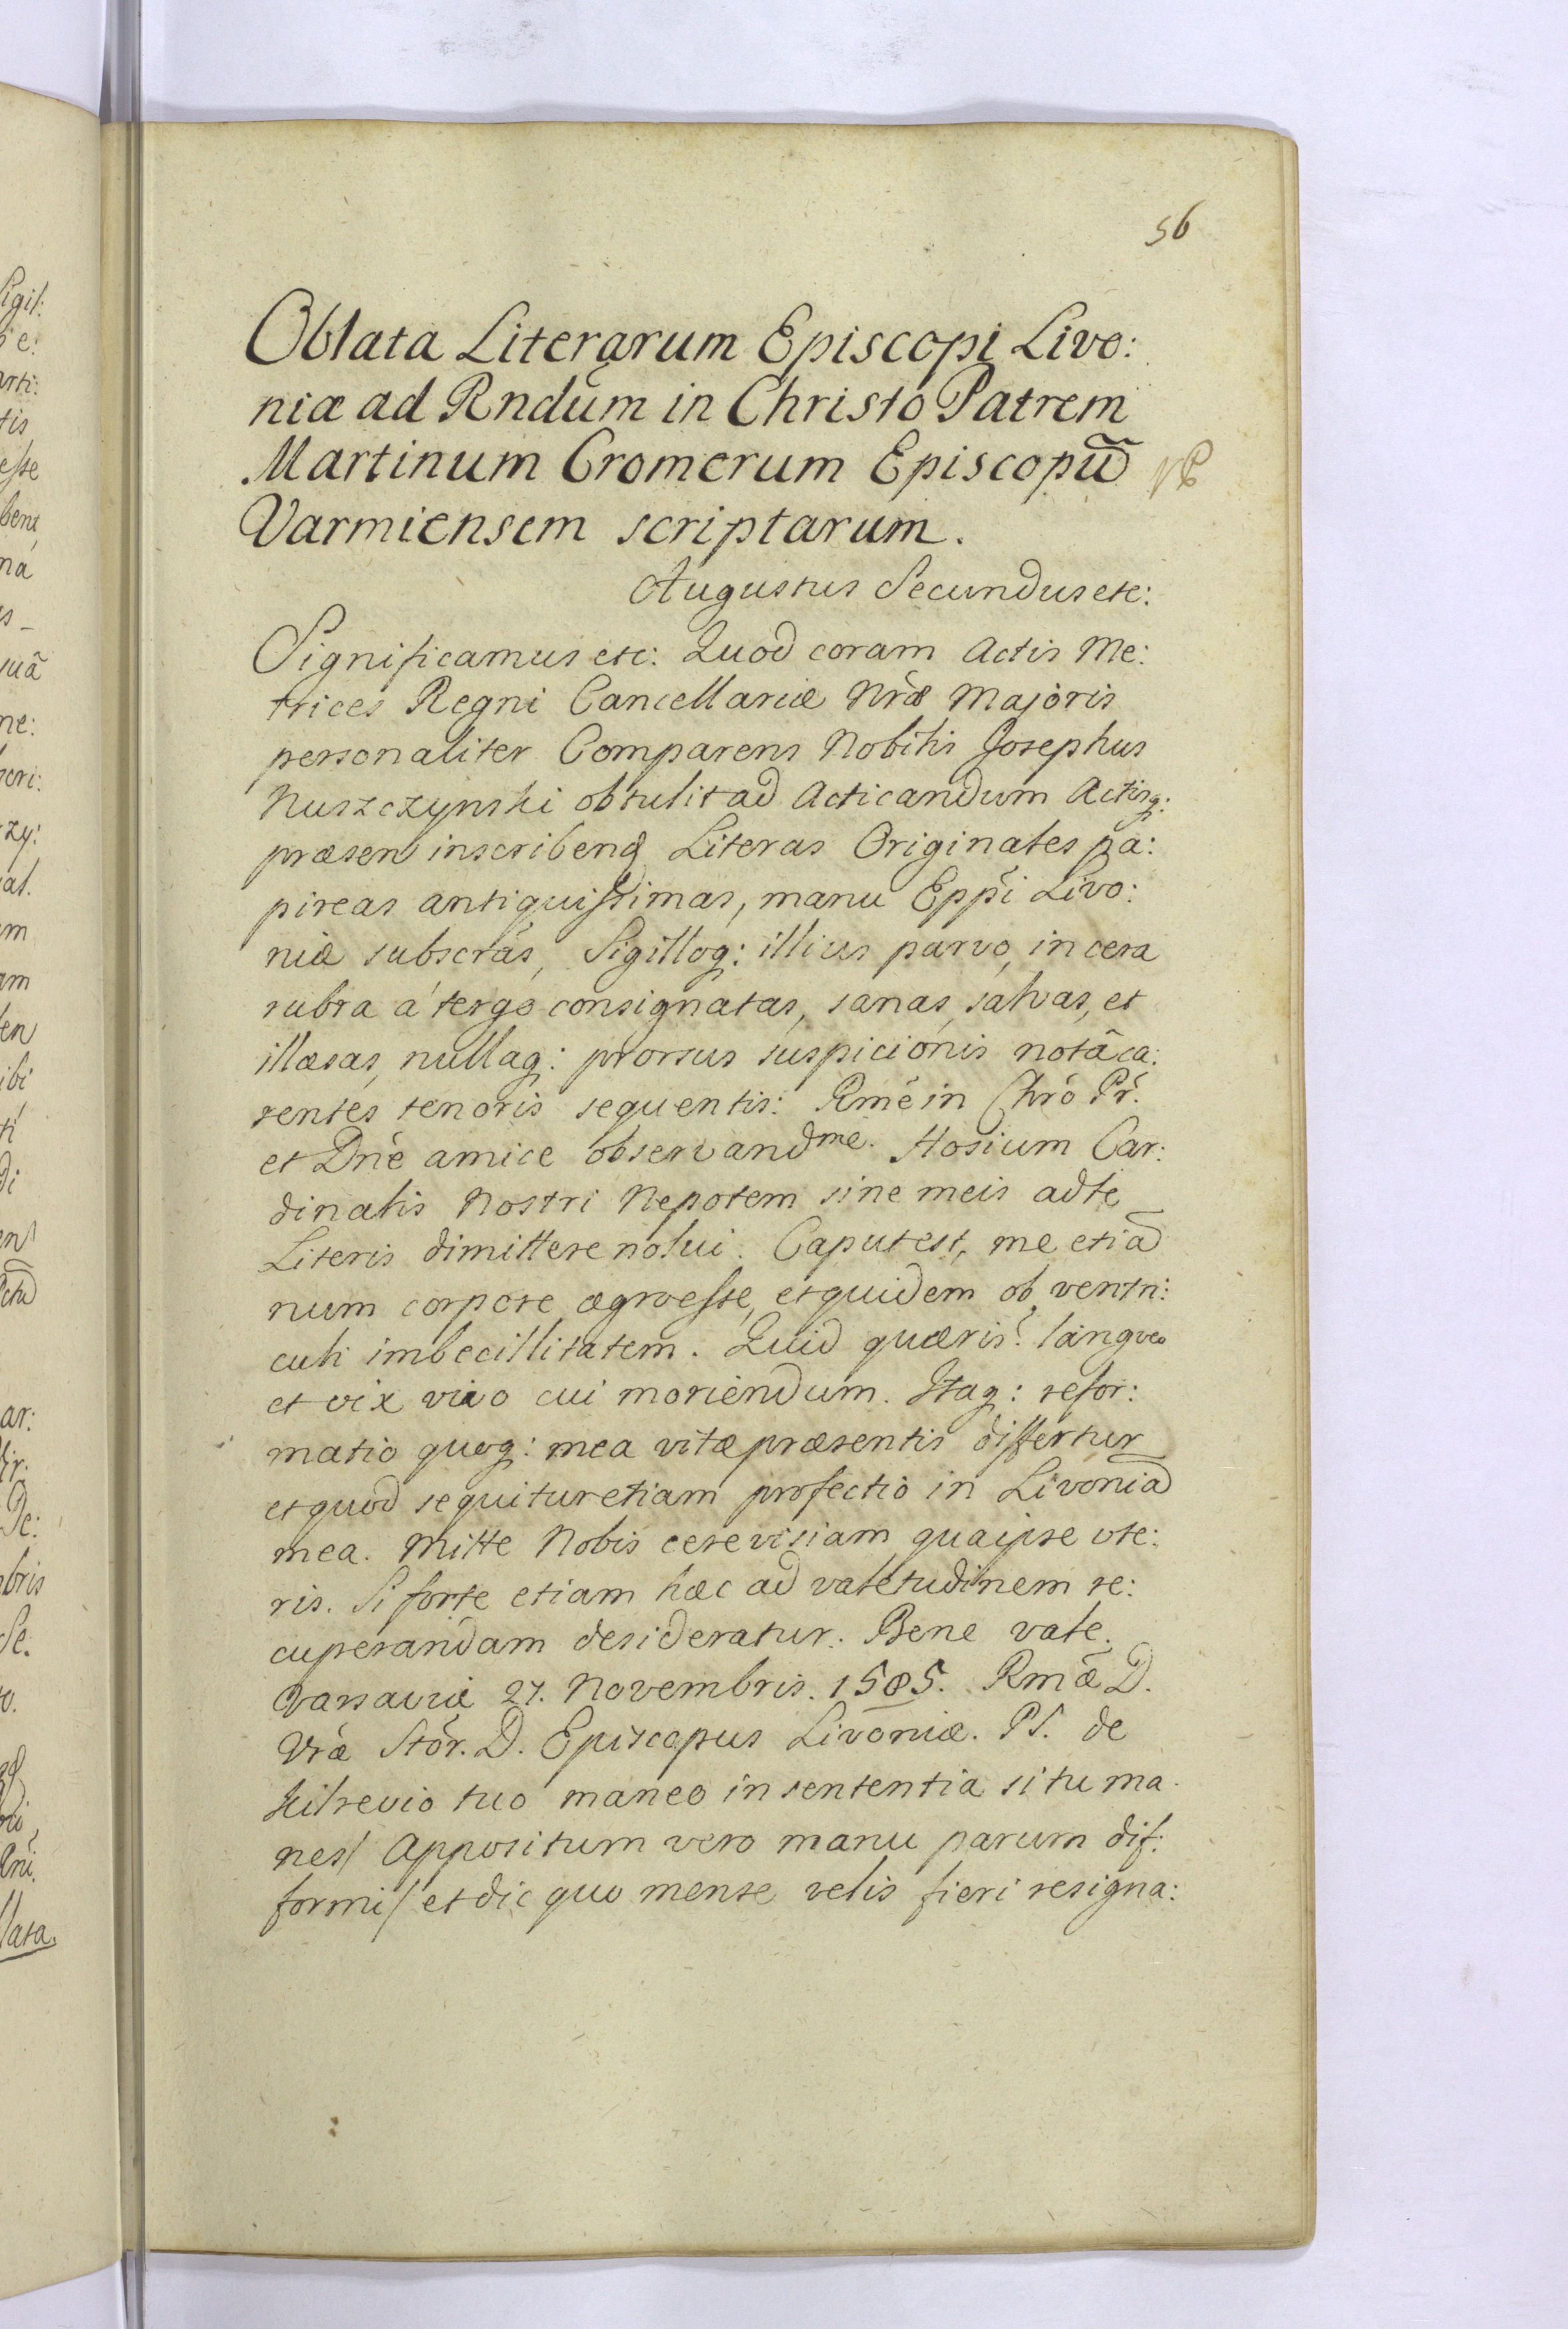 56
Oblata Literarum Episcopi Livo:
niæ ad Rndũm in Christo Patrem
Martinum Cromerum Episcopũ
Varmiensem scriptarum.
Augustus Secundus etc:
Significamus etc: Quod coram Actis Me:
trices Regni Cancellariæ Nræ Majoris
personaliter Comparens Nobilis Josephus
Nuszczynski obtulit ad Acticandum Actisq:
præsen inscribend Literas Originales pa:
pireas antiquissimas, manu Eppi Livo:
niæ subscras, Sigilloq: illius parvo, in cera
rubra á tergo consignatas, sanas, salvas, et
illæsas, nullaq: prorsus suspicionis notâ ca:
rentes tenoris sequentis: Rme in Chro Pr.
et Dne amice observandme. Hosium Car:
dinalis Nostri Nepotem sine meis ad te
Literis dimittere nolui. Caput est, me etiã
num corpore ægro esse, et quidem ob ventri:
culi imbecillitatem. Quid quæris? langveo
et vix vivo cui moriendum. Itaq: refor:
matio quoq: mea vitæ præsentis differtur
et quod sequitur etiam profectio in Livoniã
mea. Mitte Nobis cerevisiam qua ipse ute:
ris. Si forte etiam hæc ad valetudinem re:
cuperandam desideratur. Bene vale.
Varsaviæ 27. Novembris. 1585. Rmæ D.
Vræ Stor. D. Episcopus Livoniæ. PS. de
Hilrevio tuo maneo in sententia si tu ma
nes/ Appositum vero manu parum dif:
formi/ et dic quo mense velis fieri resigna: